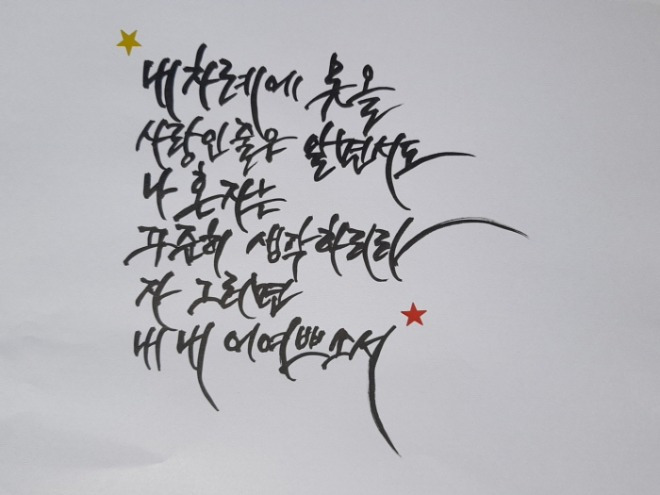 내 차례에 못 올
사랑인 줄은 알면서도
나 혼자는
꾸준히 생각하리라
자 그러면
내내 어여쁘소서